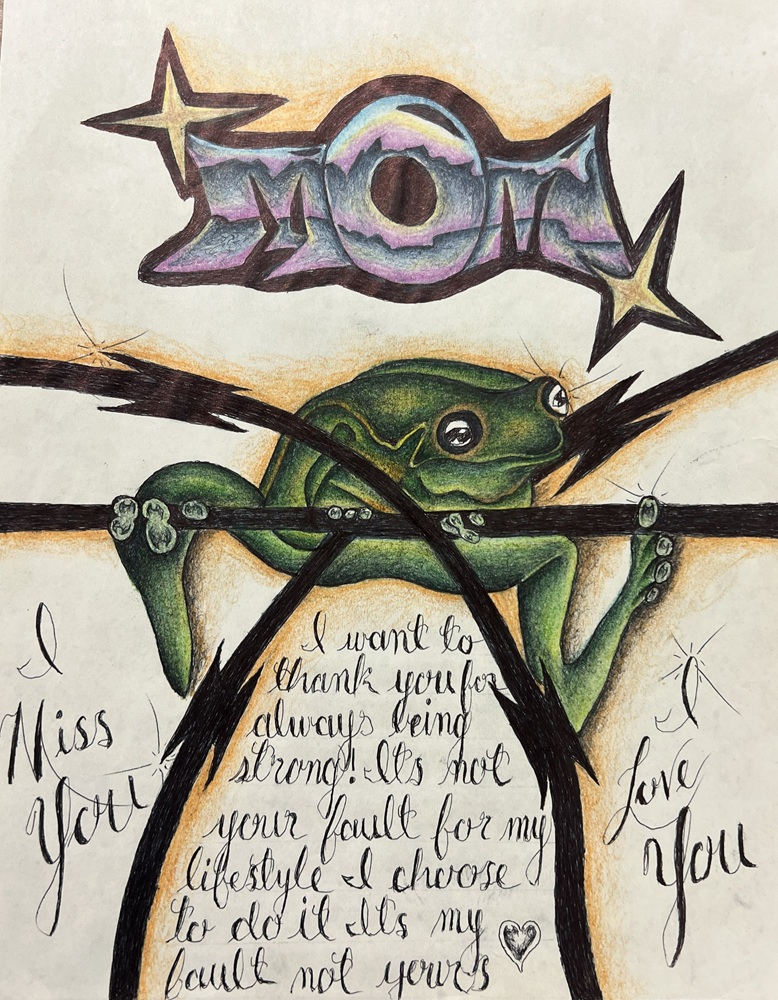 MOM
I
Miss
You
I want to
thank you for
always being
strong! Its not
your fault for my
lifestyle I choose
to do it Its my
fault not yours
I
Love
You